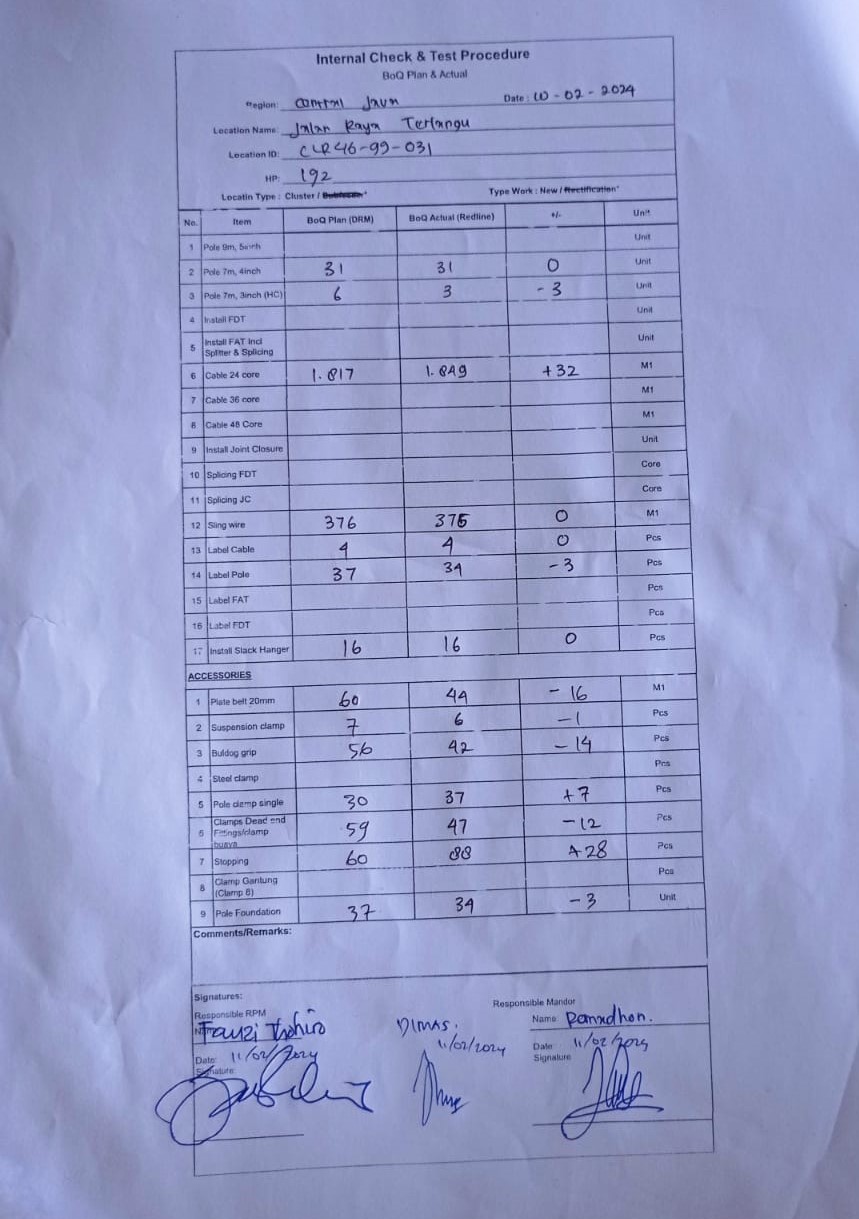 Internal Check & Test Procedure
BoQ Plan & Actual
Region: Central Java Date: 10-02-2024
Location Name: Jalan Raya Terlangu
Location ID: CLR46-99-031
HP: 192
Locatin Type : Cluster / Type Work : New / Rectification*
No. Item BoQ Plan (DRM) BoQ Actual (Redline) +/- Unit
1 Pole 9m, 5inch Unit
2 Pole 7m, 4inch 31 31 0 Unit
3 Pole 7m, 3inch (HC) 6 3 -3 Unit
4 Install FDT Unit
5 Install FAT Incl Splitter & Splicing Unit
6 Cable 24 core 1.817 1.849 +32 M1
7 Cable 36 core M1
8 Cable 48 Core M1
9 Install Joint Closure Unit
10 Splicing FDT Core
11 Splicing JC Core
12 Sling wire 376 376 0 M1
13 Label Cable 4 4 0 Pcs
14 Label Pole 37 34 -3 Pcs
15 Label FAT Pcs
16 Label FDT Pcs
17 Install Slack Hanger 16 16 0 Pcs
ACCESSORIES
1 Plate belt 20mm 60 44 -16 M1
2 Suspension clamp 7 6 -1 Pcs
3 Buldog grip 56 42 -14 Pcs
4 Steel clamp Pcs
5 Pole clemp single 30 37 +7 Pcs
6 Clamps Dead end Fittings/clamp buaya 59 47 -12 Pcs
7 Stopping 60 88 +28 Pcs
8 Clamp Gantung (Clamp 8) Pcs
9 Pole Foundation 37 34 -3 Unit
Comments/Remarks:
Signatures:
Responsible RPM Responsible Mandor
Fauzi DIMAS. Name: Ramadhon.
Date: 11/02/2024 11/02/2024 Date: 11/02/2024
Signature: Signature